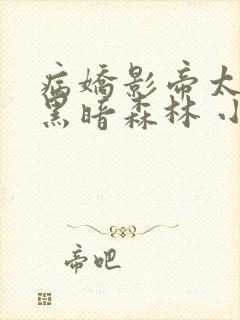 病嬌影帝太
黑暗森林 小
帝吧